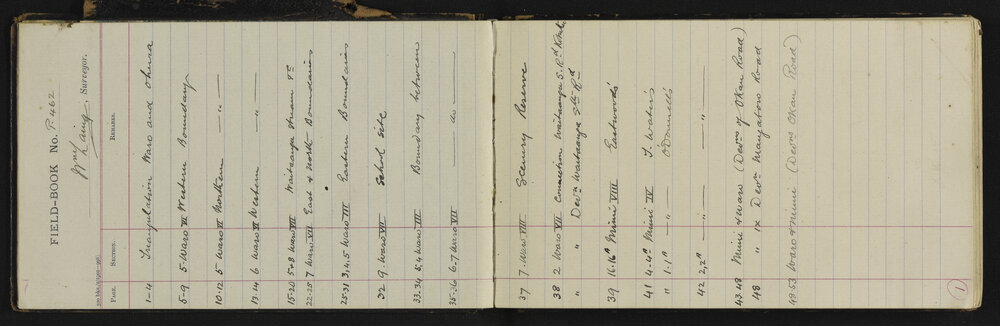 FIELD-BOOK No. P.462
Wm Laing, Surveyor.
PAGE. SECTION. REMARKS.
1-4 Triangulation Waro and Ohura
5-9 5 Waro VI Western Boundary
10-12 5 Waro VI Northern — " —
13-14 6 Waro VI Western — " —
15-20 5+8 Waro VII Waitaanga Stream &c
22-25 7 Waro VII East & North Boundaries
25-31 3, 4, 5 Waro III Eastern Boundaries
32 9 Waro VII School Site
33, 34 5, 4 Waro III Boundary between
35-36 6-7 Waro VII — do —
37 7 Waro VIII Scenery Reserve
38 2 Waro VII Connection Waitaanga S. Rd
" " Devn Waitaanga Sth Rd
39 16.16A Mimi VIII Eastwoods
41 4-4A Mimi IV J. Waters
" 1-1A — " — O'Donnells
42 2, 2A — " — — " —
43.48 Mimi & Waro (Devn of Okau Road)
48 " IX Devn Mangatoro Road
48.53 Waro & Mimi (Devns Okau Road)
1